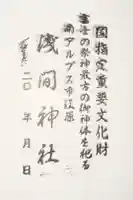 国指定重要文化財
三柱の祭神最古の御神体を祀る
南アルプス市江原
浅間神社
二〇　年　月　日